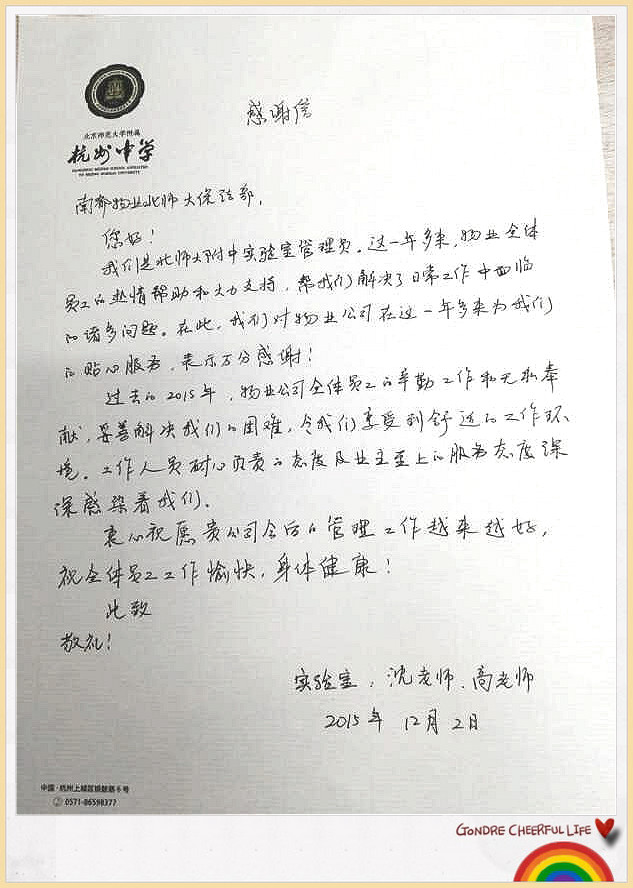 北京师范大学附属
杭州中学
感谢信
南都物业北师大保洁部,
您好!
我们是北师大附中实验室管理员。这一年多来,物业全体
员工的热情帮助和大力支持,帮我们解决了日常工作中面临
的诸多问题。在此,我们对物业公司在这一年多来为我们
的贴心服务,表示万分感谢!
过去的2015年,物业公司全体员工的辛勤工作和无私奉
献,妥善解决我们的困难,令我们享受到舒适的工作环
境。工作人员耐心负责的态度及业主至上的服务态度深
深感染着我们。
衷心祝愿贵公司今后的管理工作越来越好,
祝全体员工工作愉快,身体健康!
此致
敬礼!
实验室:沈老师、高老师
2015年 12月 2日
中国·杭州上城区
0571-86598377
GONDRE CHEERFUL LIFE